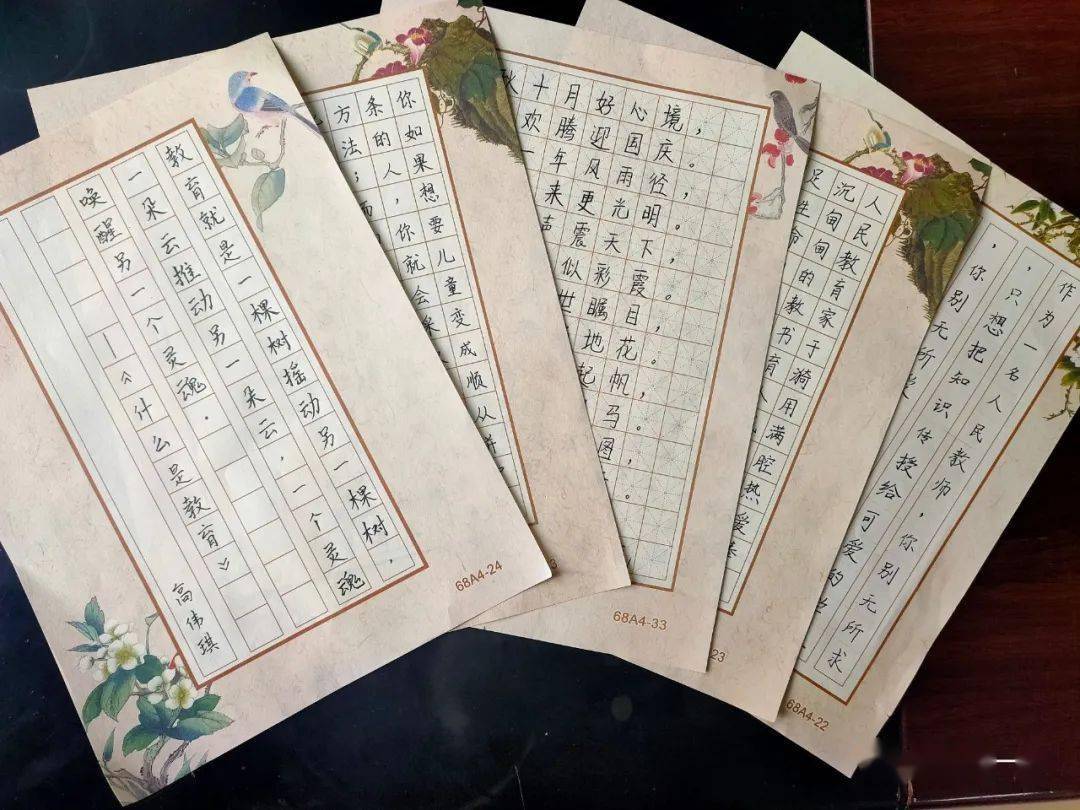 教育就是一棵树摇动另一棵树，
一朵云推动另一朵云，一个灵魂
唤醒另一个灵魂。
—《什么是教育》
高伟琪
68A4-24
你如果想要儿童变成顺从
条的人，你就会采
方法；而
3
十月好心境，
欢腾迎国庆。
一年风雨径，
来更光明。
声震天下，
似彩霞。
世瞩目，
地花。
起帆，
马。
图，
68A4-33
人民教育家于漪用满腔热爱
沉甸甸的教书育人
足生命
23
作为一名人民教师，你别无所求
，只想把知识传授给可爱的
，你别无所
68A4-22